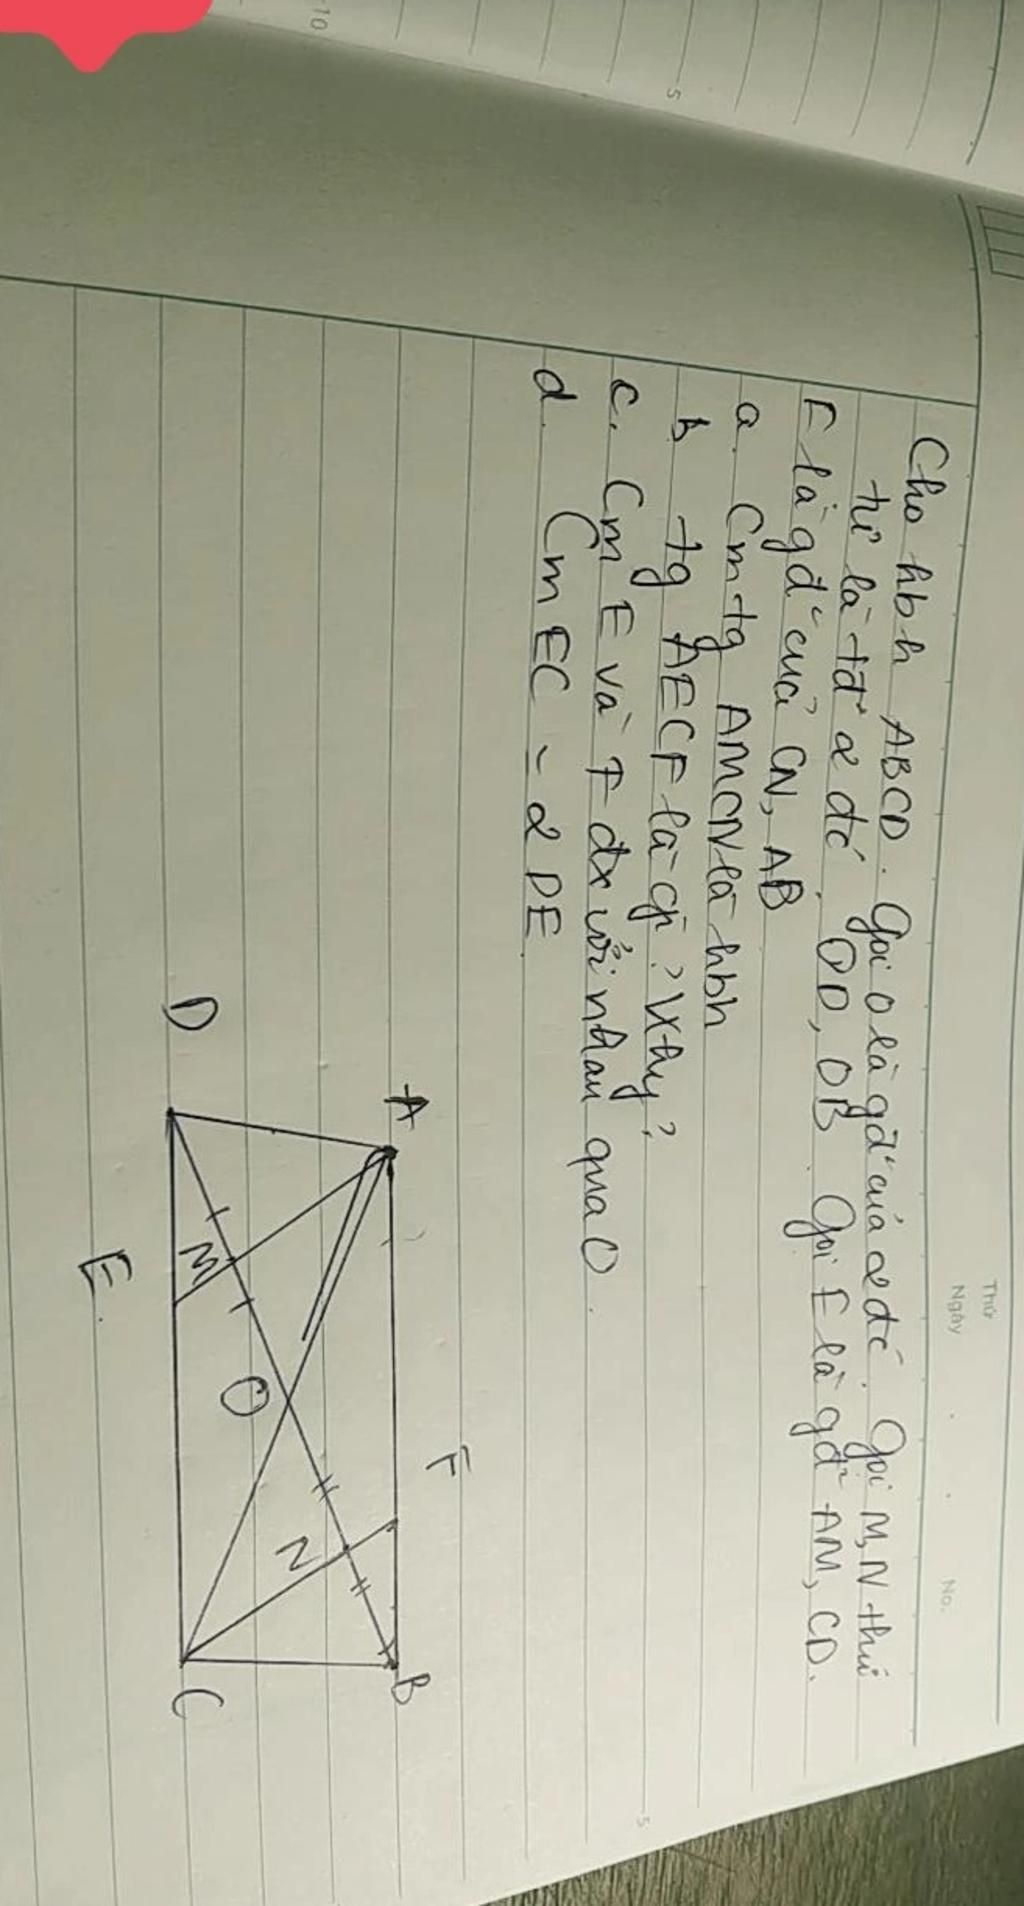 Thứ
Ngày
No.
Cho hbh ABCD. Gọi O là gđ² của 2 đc. Gọi M, N thứ
tự là tđ² 2 đc OD, OB. Gọi E là gđ² AM, CD.
F là gđ² của CN, AB
a. Cm tg AMCN là hbh
b tg AECF là gì? Vì sao?
c. Cm E và F đx với nhau qua O.
d. Cm EC = 2 DE
A
B
C
D
E
F
M
N
O
5
10
5